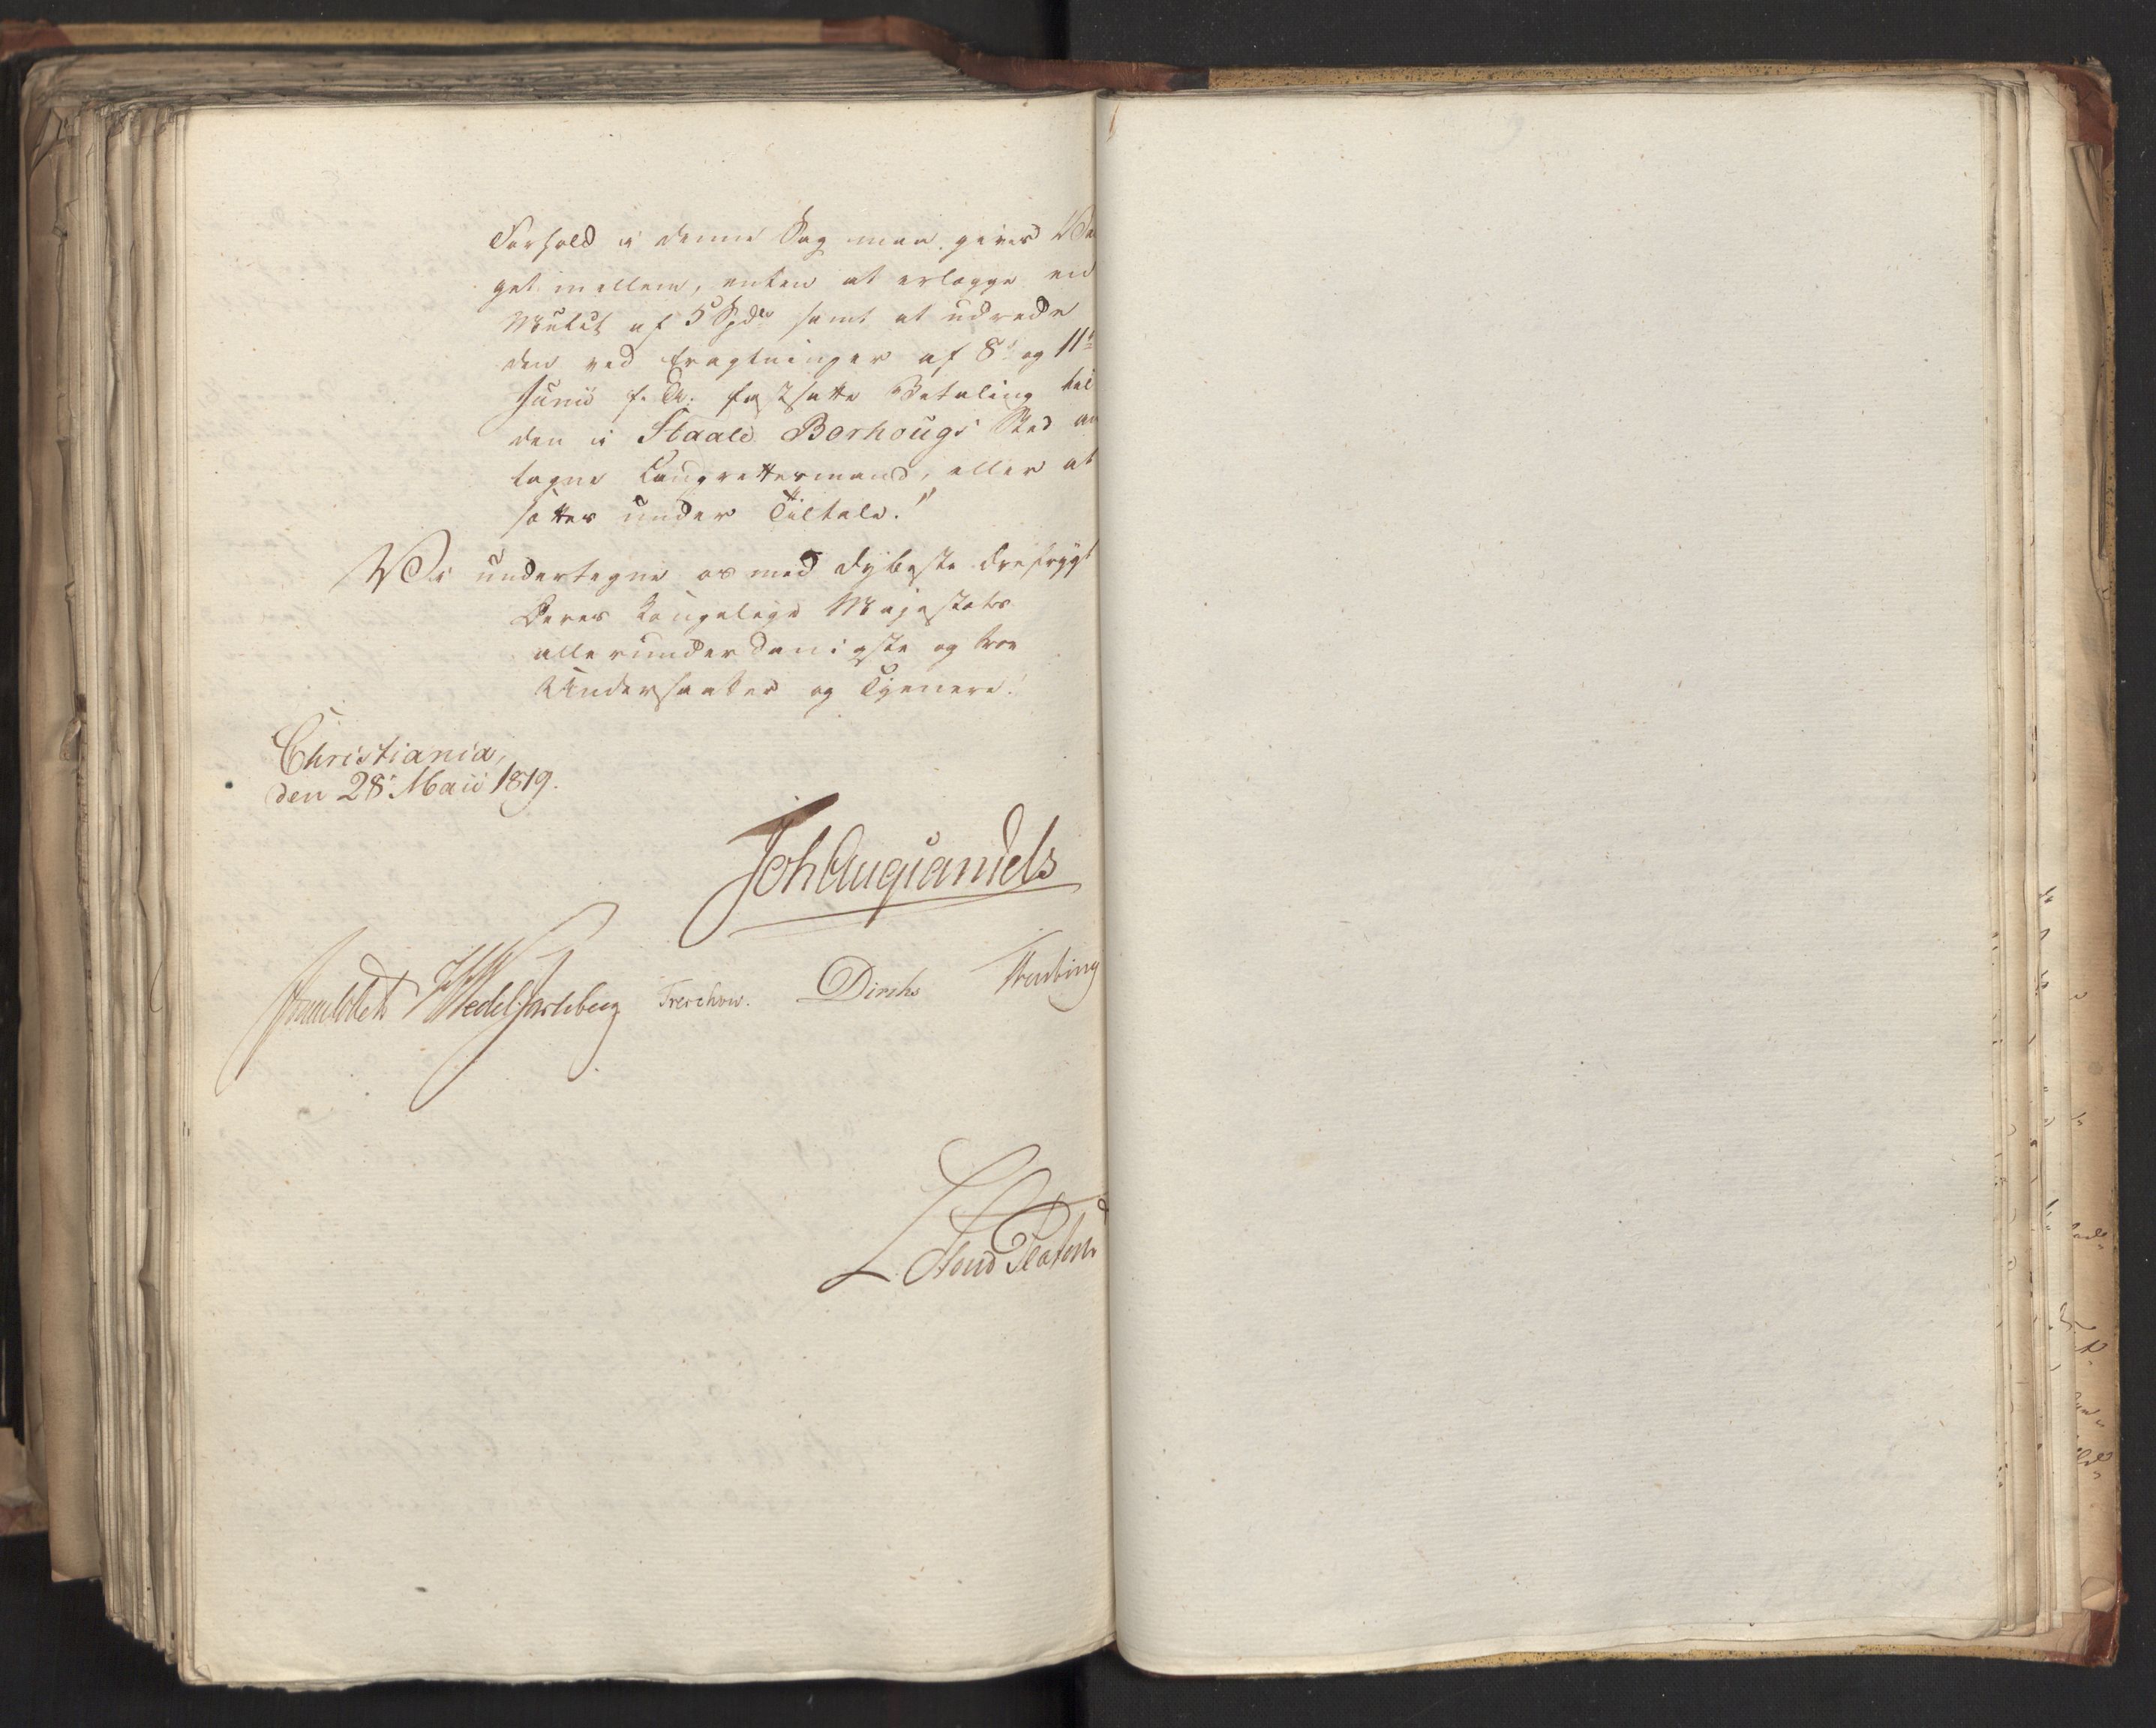 Forhold i denne Sag maa gives Val
get imellem, enten at erlægge en
Mulct af 5 Spdlr samt at udrede
den ved Eragtninger af 8de og 11te
Junii f. A. fastsatte Betaling til
den i Staale Borhougs Sted an
tagne Laugrettesmand, eller at
sættes under Tiltale."
Vi undertegne os med dybeste Ærefrygt
Deres Kongelige Majestæts
allerunderdanigste og troe
Undersaatter og Tjenere.
Christiania,
den 28 Maii 1819.
Joh Aug Sandels
Sommeldt HWedel Jarlsberg Treschow. Diriks Krebting
L. Stoud Platou